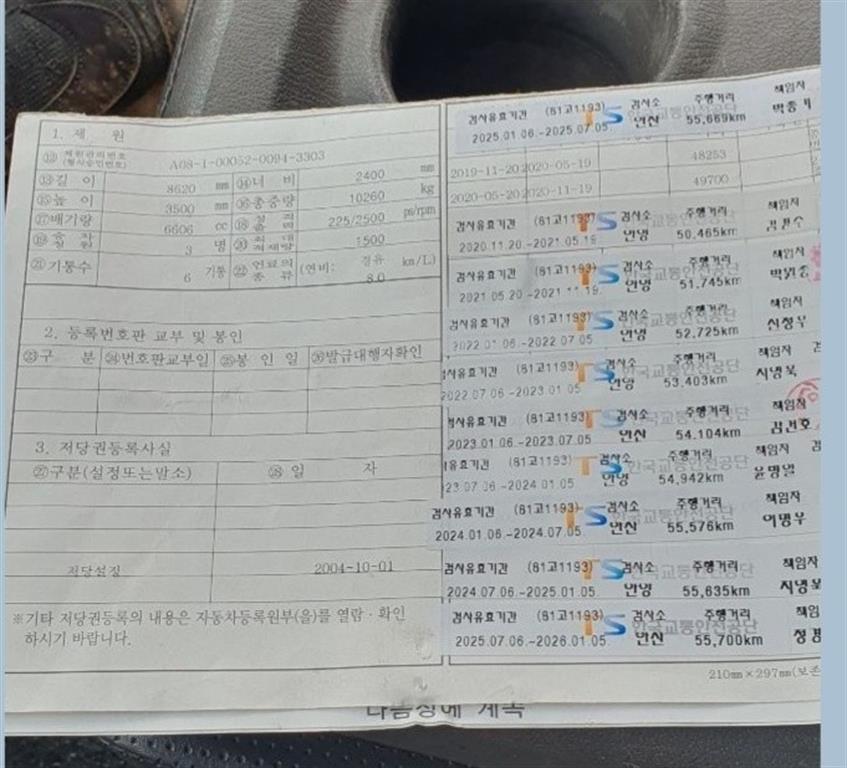 1. 제 원
⑫ 제원관리번호 (형식승인번호) A08-1-00052-0094-3303
⑬길 이 8620 mm ⑭너 비 2400 mm
⑮높 이 3500 mm ⑯총중량 10260 kg
⑰배기량 6606 cc ⑱ 225/2500 ps/rpm
⑲승차 정원 3 명 ⑳최대 적재량 1500
㉑기통수 6 기통 ㉒연료의 종류 경유 (연비: 8.0 km/L)
2. 등록번호판 교부 및 봉인
㉓구 분 ㉔번호판교부일 ㉕봉 인 일 ㉖발급대행자확인
3. 저당권등록사실
㉗구분(설정또는말소) ㉘일 자
저당설정 2004-10-01
※기타 저당권등록의 내용은 자동차등록원부(을)를 열람·확인
하시기 바랍니다.
검사유효기간 (81고1193) TS 검사소 주행거리 책임자
2025.01.06.-2025.07.05 안산 55,669km 박종
2019-11-20 2020-05-19 48253
2020-05-20 2020-11-19 49700
검사유효기간 (81고1193) TS 검사소 주행거리 책임자
2020.11.20.-2021.05.19 안녕 50,465km
검사유효기간 (81고1193) TS 검사소 주행거리 책임자
2021.05.20.-2021.11.19. 안녕 51,745km
검사유효기간 (81고1193) TS 검사소 주행거리 책임자
2022.01.06.-2022.07.05 안녕 52,725km 신청우
검사유효기간 (81고1193) TS 검사소 주행거리 책임자
2022.07.06.-2023.01.05 안녕 53,403km 지영복
검사유효기간 (81고1193) TS 검사소 주행거리 책임자
2023.01.06.-2023.07.05 안산 54,104km
사유효기간 (81고1193) TS 검사소 주행거리 책임자
23.07.06.-2024.01.05 안녕 54,942km 윤명일
검사유효기간 (81고1193) TS 검사소 주행거리 책임자
2024.01.06.-2024.07.05 안산 55,576km 이명우
검사유효기간 (81고1193) TS 검사소 주행거리 책임자
2024.07.06.-2025.01.05 안녕 55,635km 지영복
검사유효기간 (81고1193) TS 검사소 주행거리 책임
2025.07.06.-2026.01.05. 안산 55,700km
210mm×297mm(보존
다음장에 계속